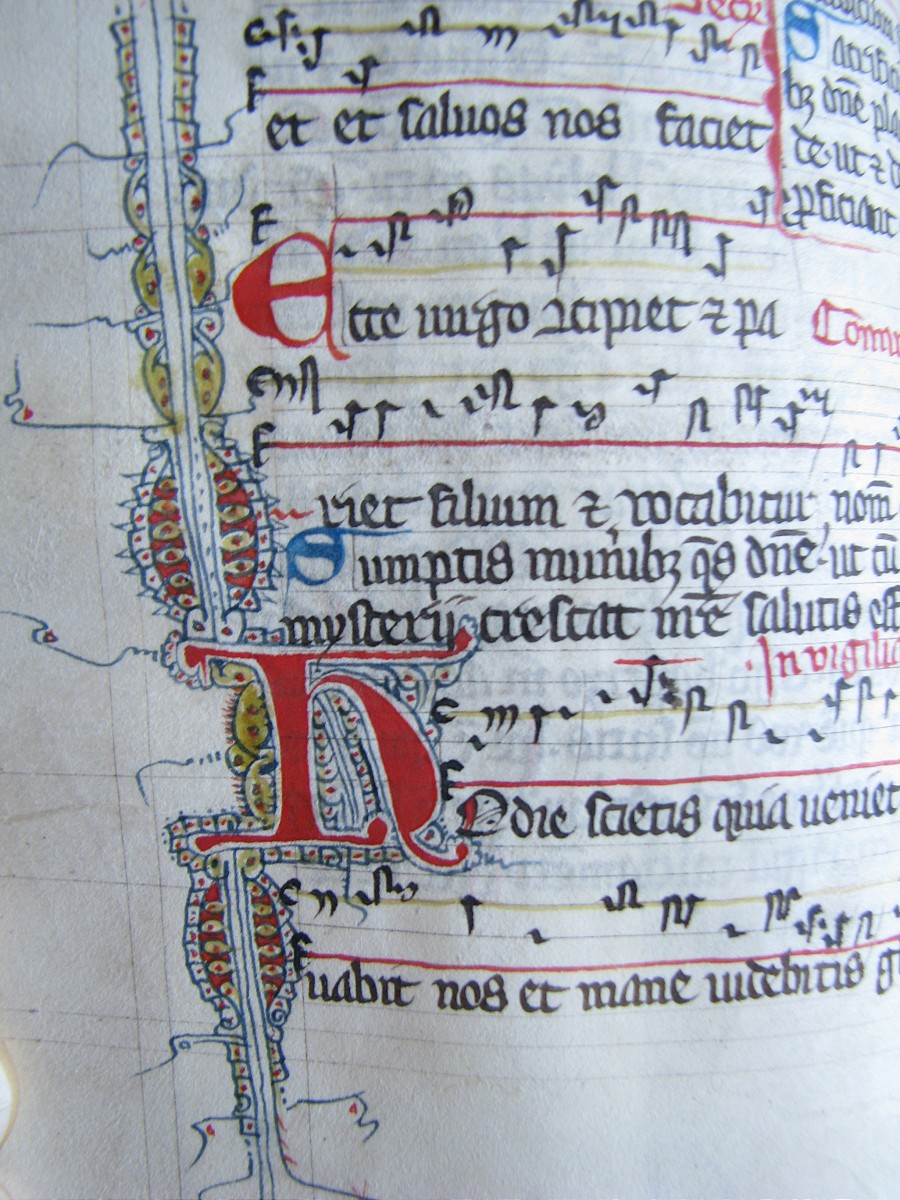 et et saluos nos faciet
Ecce uirgo ɔcipiet ⁊ pa
riet filium ⁊ vocabitur nom̄
Sumptis munibꝫ q̄s dn̄e ut cū
mysterij crescat nr̄e salutis eff
In vigilia
Hodie scietis quia ueniet
uabit nos et mane uidebitis gl
bꝫ dn̄e pla
te ut ⁊ d
ꝑficiant
Comm